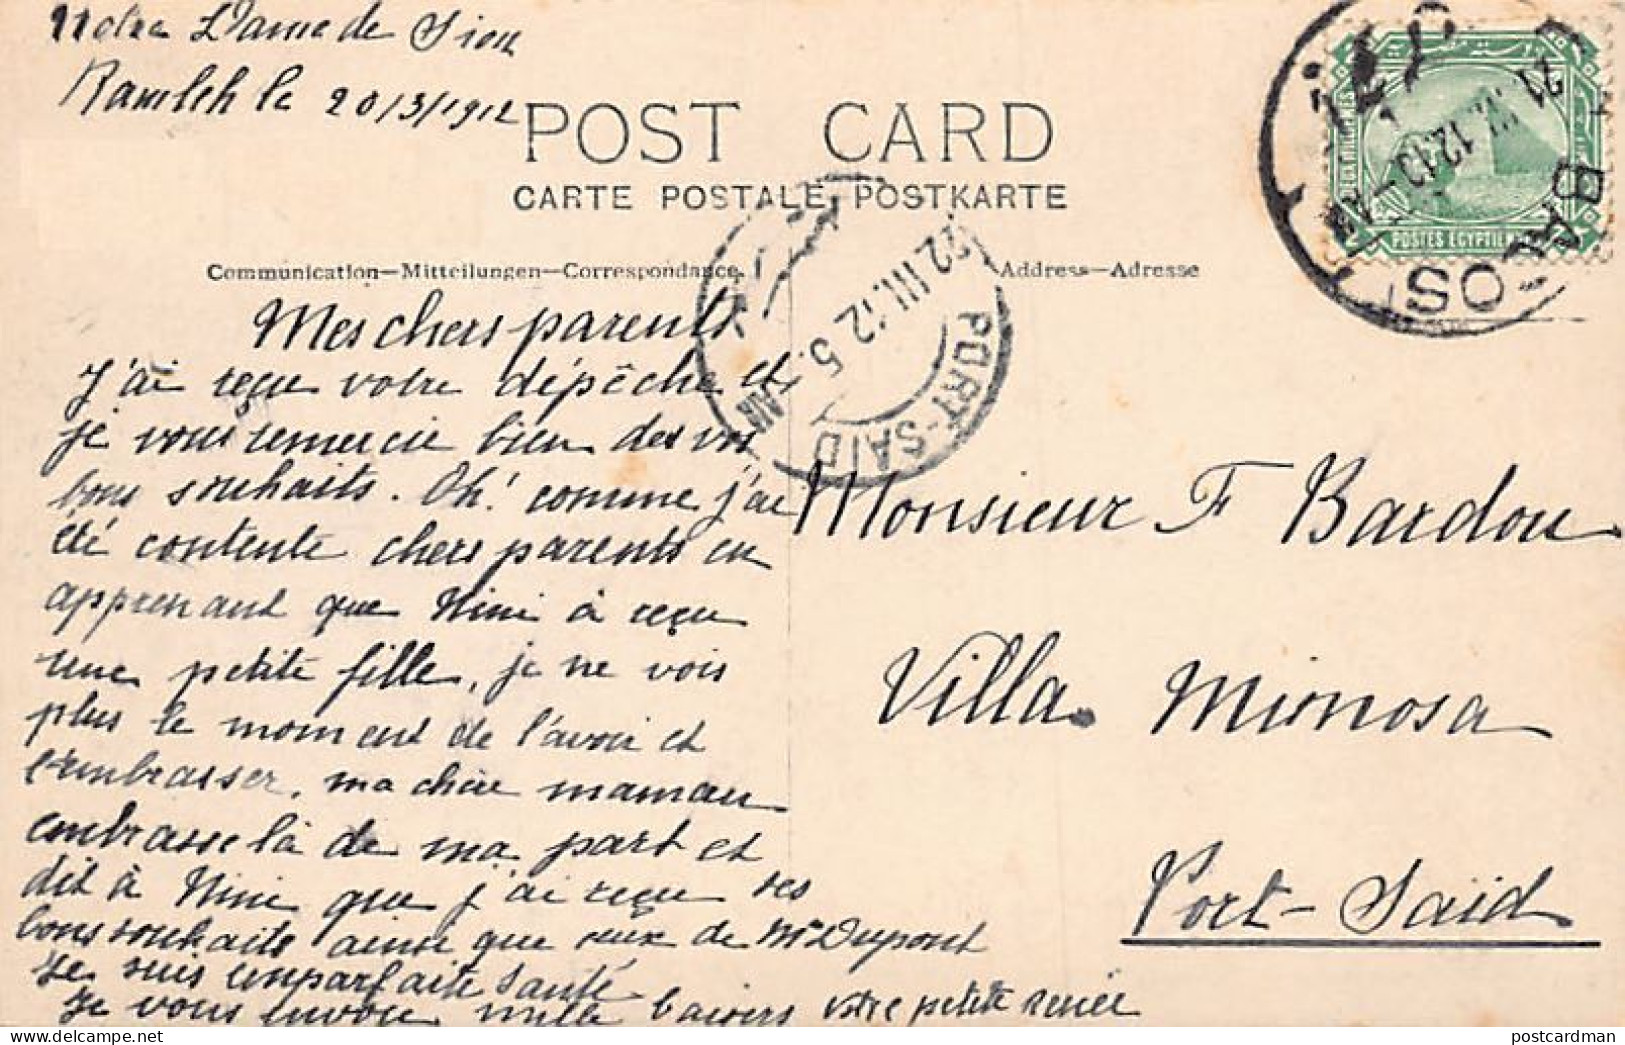 Notre Dame de Sion
Ramleh le 20/3/1912
POST CARD
CARTE POSTALE POSTKARTE
Communication—Mitteilungen—Correspondance
Address—Adresse
POSTES EGYPTIEN
BACOS
21
III. 12. 10
AM
PORT-SAID
22 III. 12 5 AM
Mes chers parents
J'ai reçu votre dépêche et
je vous remercie bien des vos
bons souhaits. Oh! comme j'ai
été contente chers parents en
apprenant que Nini à reçu
une petite fille, je ne vois
plus le moment de l'avoir et
l'embrasser, ma chère maman
embrasse là de ma part et
dit à Nini que j'ai reçu ses
bons souhaits ainsi que ceux de Mr Dupont
Je suis en parfaite santé
Je vous envoie mille baisers votre petite Renée
Monsieur F Bardou
Villa Mimosa
Port-Saïd
postcardman